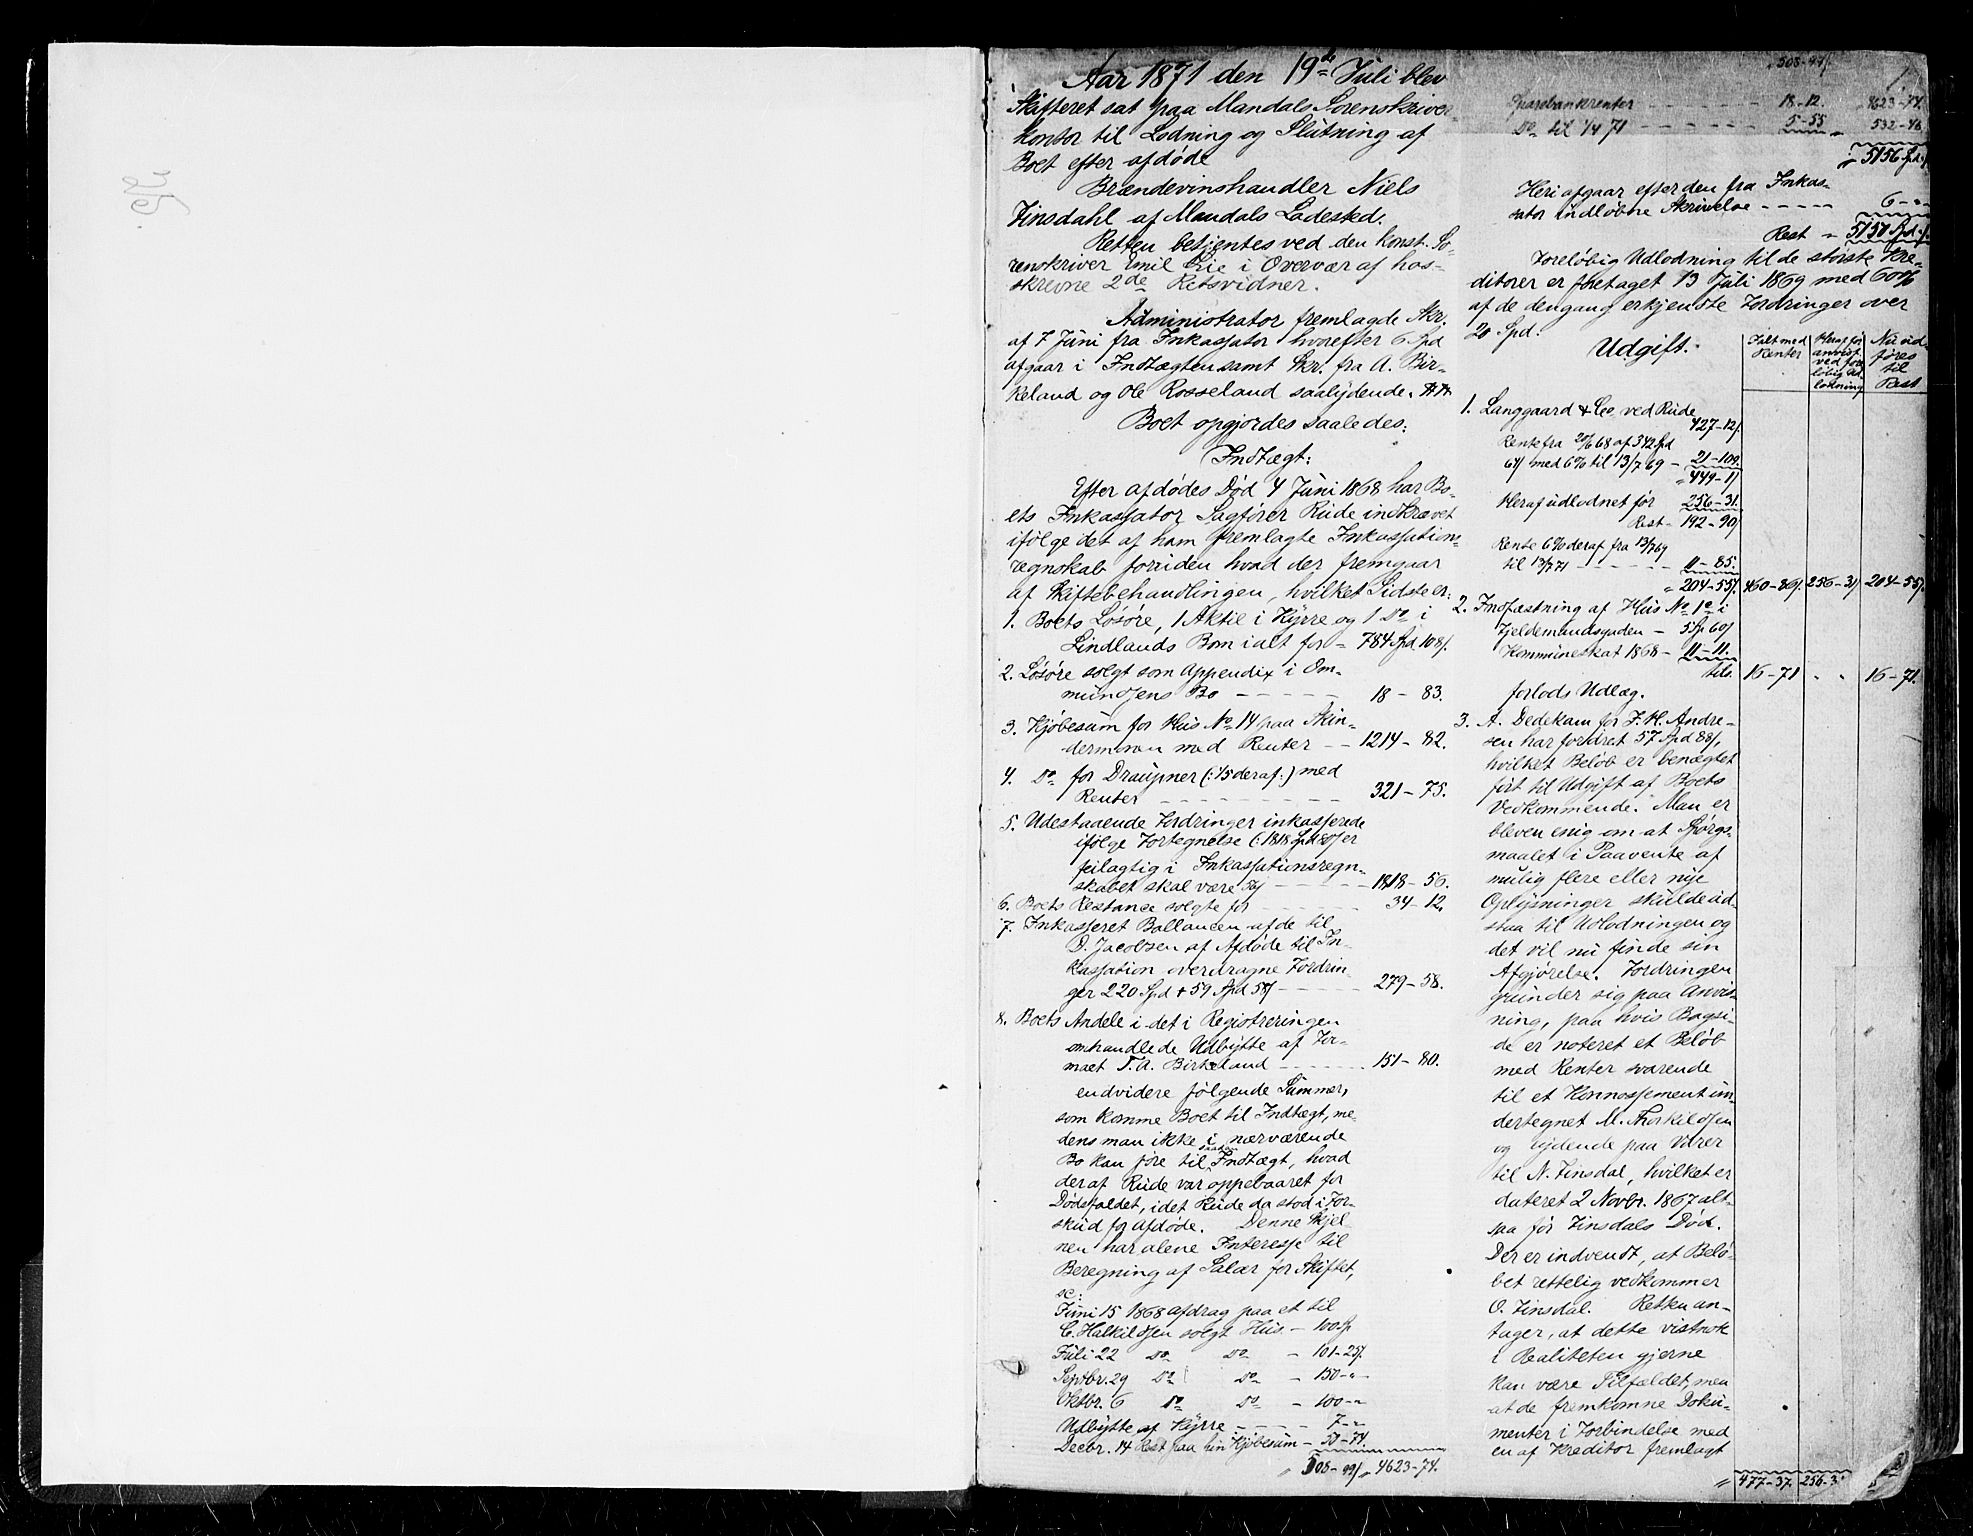 Aar 1871 den 19de Juli blev
Skifteret sat paa Mandals Sorenskriver-
kontor til Lodning og Slutning af
Boet efter afdøde
Brændevinshandler Niels
Tinsdahl af Mandals Ladested.
Retten betjentes ved den konst. So-
renskriver Emil Lie i Overvær af hos-
skrevne 2de Retsvidner.
Administrator fremlagde Skr.
af 7 Juni fra Inkassator hvorefter 6 Spd
afgaar i Indtægten samt Skr. fra A. Bir-
keland og Ole Rosseland saalydende.
Boet opgjordes saaledes:
Indtægt:
Efter afdødes Død 4 Juni 1868 har Bo-
ets Inkassator Sagfører Rude indkrævet
ifølge det af ham fremlagte Inkassations-
regnskab foruden hvad der fremgaar
af Skiftebehandlingen, hvilket Sidste er:
1. Boets Løsøre, 1 Aktie i Hyrre og 1 Do i
Lindlands Bom ialt for - 784 Spd 108/.
2. Løsøre solgt som Appendix i Om-
mundsens Bo - 18 - 83.
3. Kjøbesum for Hus No 14 paa Skin-
dermoen med Renter - 1214 - 82.
4. Do for Draupner (: 1/5 deraf :) med
Renter - 321 - 75.
5. Udestaaende Fordringer inkasserede
ifølge Fortegnelse (: 1818 Spd 80/ er
feilagtig i Inkassationsregn-
skabet skal være - 1818 - 56.
6. Boets Restance solgte for - 34 - 12.
7. Inkasseret Ballancen af de til
D. Jacobsen af Afdøde til In-
kassation overdragne Fordrin-
ger 220 Spd + 59 Spd 58/ - 279 - 58.
8. Boets Andele i det i Registreringen
omhandlede Udbytte af Fir-
maet T. A. Birkeland - 151 - 80.
endvidere følgende Summer,
som komme Boet til Indtægt, me-
dens man ikke i nærværende
Bo kan føre til saadan Indtægt, hvad
deraf Rude var oppebaaret før
Dødsfaldet, idet Rude da stod i For-
skud for Afdøde. Denne Skjel-
nen har alene Interesse til
Beregning af Salær for Skiftet,
sc:
Juni 15 1868 afdrag paa et til
C. Halkildsen solgt Hus - 100 Sp
Juli 22 Do Do - 101 - 25/.
Septbr. 29 Do Do - 150 - "
Oktbr. 6 Do Do - 100 - "
Udbytte af Hyrre - 7 - "
Decbr. 14 Rest paa hin Kjøbesum - 50 - 74
508 - 99/ " 4623 - 74.
508 - 99/
Sparebankrenter - 18 - 12. 4623 - 74.
Do til 1/4 71 - 5 - 55 " 532 - 46
" 5156 Spd /
Heri afgaar efter den fra Inkas-
sator indløbne Skrivelse - 6 - "
Rest - 5150 Spd /
Foreløbig Udlodning til de største Kre-
ditorer er foretaget 13 Juli 1869 med 60 %
af de dengang erkjendte Fordringer over
20 Spd.
Udgift.
Ialt med Renter
Heraf før anvist ved foreløbig Udlodning
Nu udføres til Rest
1. Langgaard & Co ved Rude
427 - 12/.
Rente fra 20/6 68 af 342 Spd
64/ med 6 % til 13/7 69 - 21 - 109.
" 449 - 1/
Heraf udlodnet før 256 - 31.
Rest - 192 - 90/
Rente 6 % deraf fra 13/7 69
til 13/7 71 - 11 - 85.
" 204 - 55/. 460 - 86/. 256 - 31 204 - 55/.
2. Indfæstning af Hus No 10 i
Fjeldemandsgaden - 5 Sp 60/
Kommuneskat 1868 - 11 - 11.
tils. 16 - 71 " " 16 - 71.
forlods Udlæg.
3. A. Dedekam for J. H. Andre-
sen har fordret 57 Spd 88/,
hvilket Beløb er benægtet
ført til Udgift af Boets
Vedkommende. Man er
bleven enig om at Spørgs-
maalet i Paavente af
mulig flere eller nye
Oplysninger skulde ud-
staa til Udlodningen og
det vil nu finde sin
Afgjørelse. Fordringen
grunder sig paa Anvis-
ning, paa hvis Bagsi-
de er noteret et Beløb
med Renter svarende
til et Konnossement un-
dertegnet M. Thorkildsen
og lydende paa Varer
til N. Tinsdal, hvilket er
dateret 2 Novbr. 1867 alt-
saa før Tinsdals Død.
Der er indvendt, at Belø-
bet rettelig vedkommer
O. Tinsdal. Retten an-
tager, at dette vistnok
i Realiteten gjerne
kan være Tilfældet, men
at de fremkomne Doku-
menter i Forbindelse med
en af Kreditor fremlagt
" 477 - 37. 256 - 31